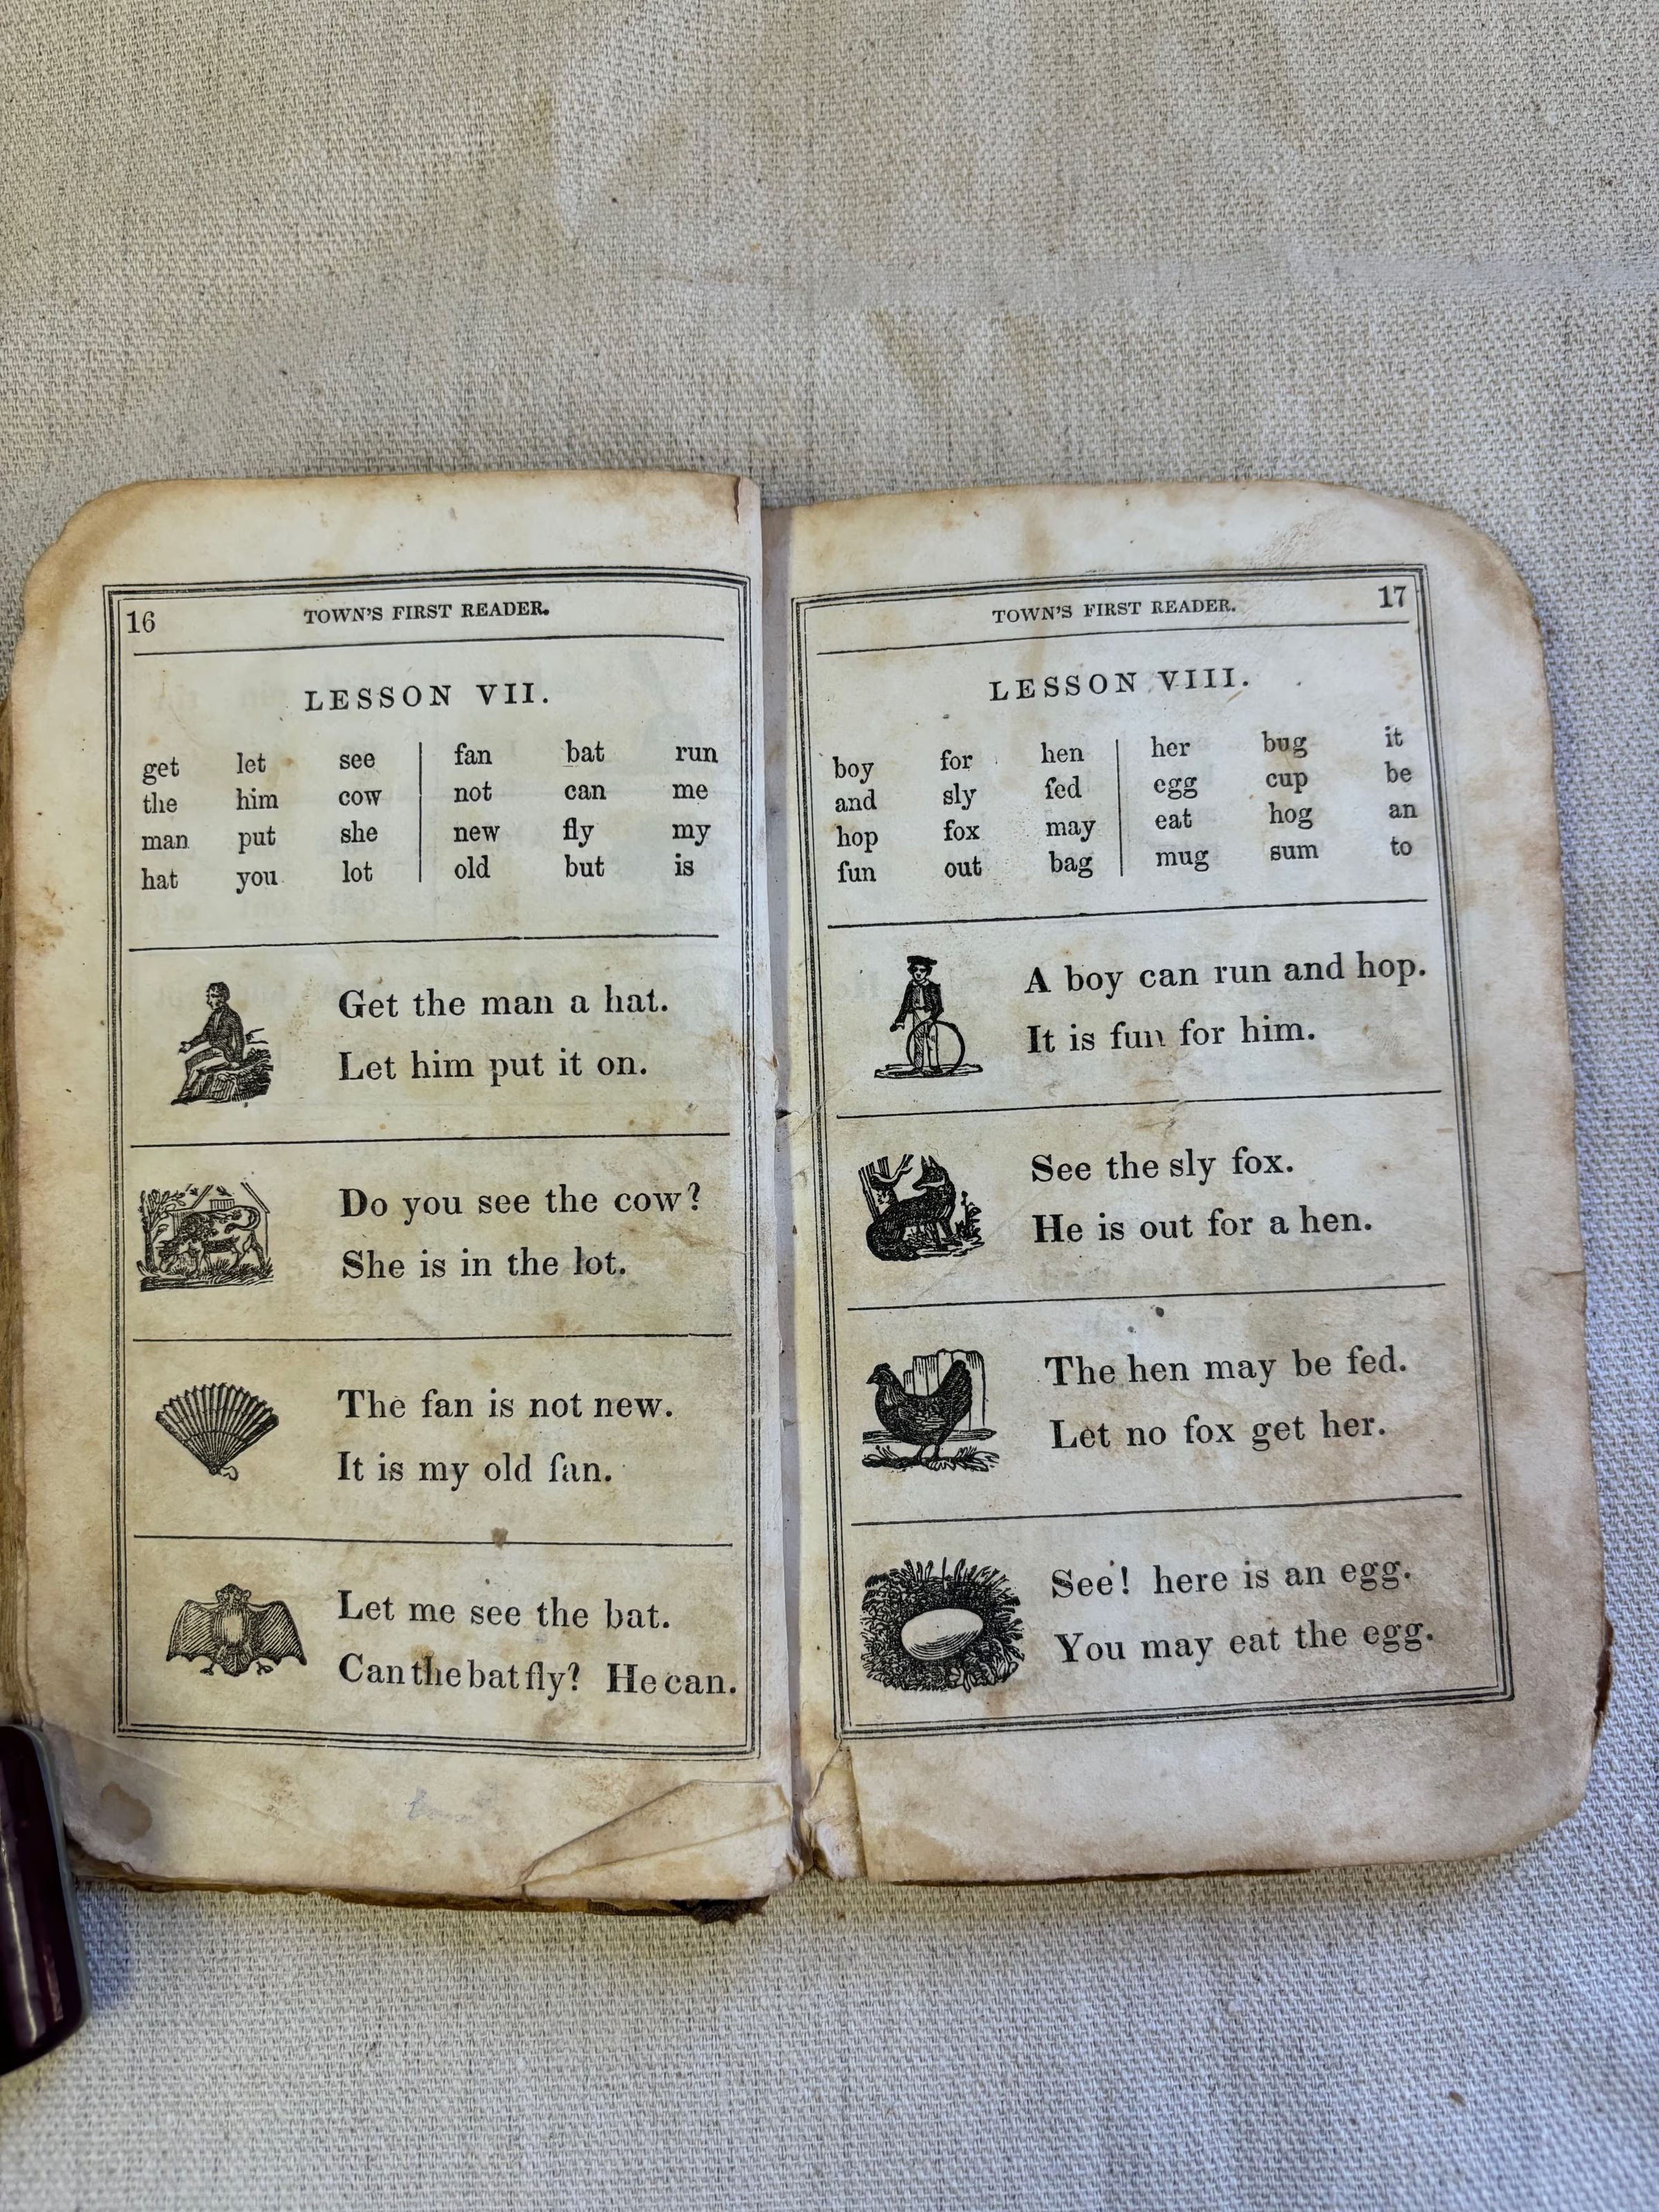 16 TOWN'S FIRST READER.
LESSON VII.
get let see fan bat run
the him cow not can me
man put she new fly my
hat you lot old but is
Get the man a hat.
Let him put it on.
Do you see the cow?
She is in the lot.
The fan is not new.
It is my old fan.
Let me see the bat.
Can the bat fly? He can.
TOWN'S FIRST READER. 17
LESSON VIII.
boy for hen her bug it
and sly fed egg cup be
hop fox may eat hog an
fun out bag mug sum to
A boy can run and hop.
It is fun for him.
See the sly fox.
He is out for a hen.
The hen may be fed.
Let no fox get her.
See! here is an egg.
You may eat the egg.